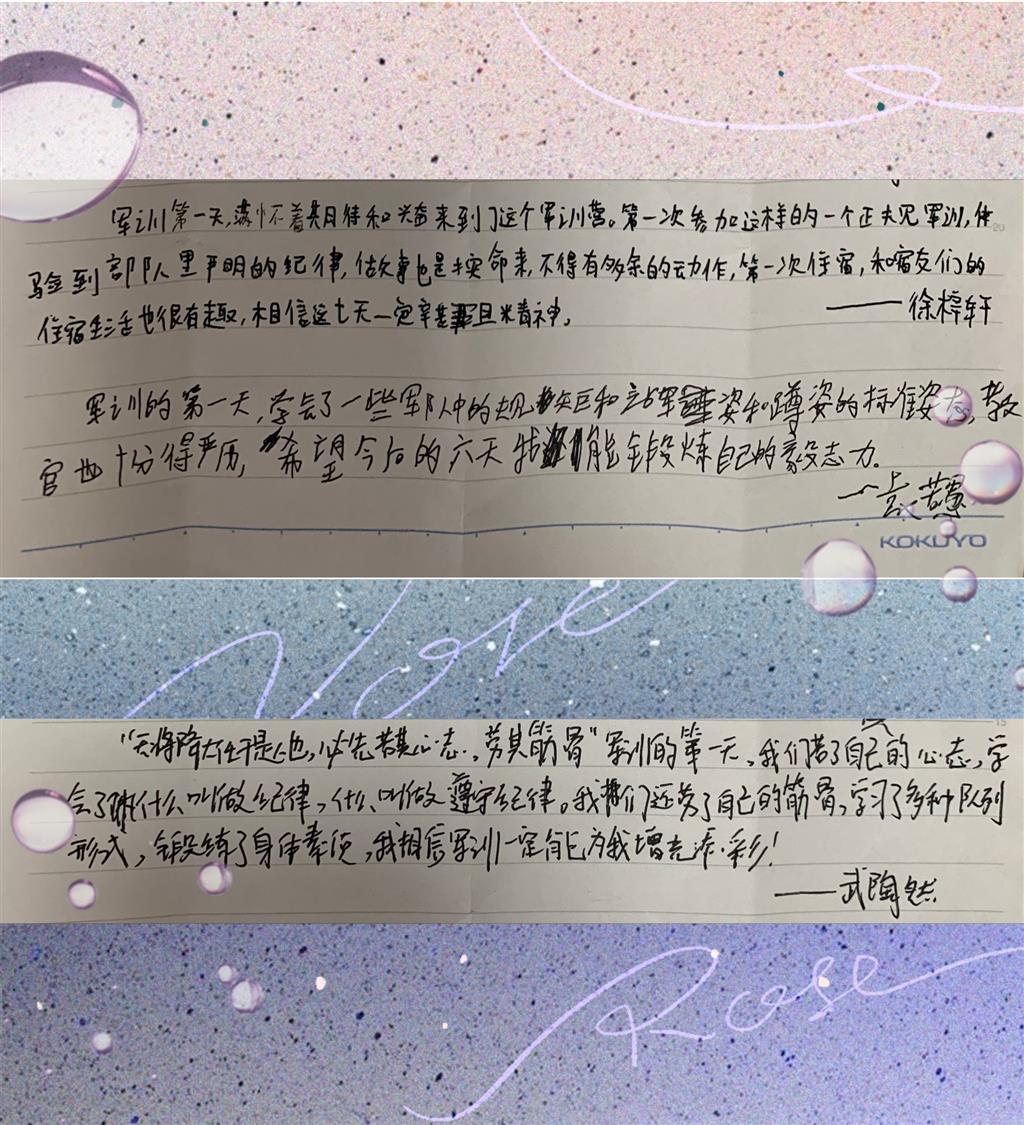 军训第一天,满怀着期待和兴奋来到了这个军训营。第一次参加这样的一个正规军训,体
验到部队里严明的纪律,做事也是按命来,不得有多余的动作,第一次住宿,和宿友们的
住宿生活也很有趣,相信这七天一定辛苦且精神。
——徐梓轩
军训的第一天,学会了一些军队中的规矩和站军姿和蹲姿的标准姿态,教
官也十分得严厉,希望今后的六天我能锻炼自己的毅志力。
KOKUYO
“天将降大任于是人也,必先苦其心志,劳其筋骨”军训的第一天,我们苦了自己的心志,学
会了什么叫做纪律,什么叫做遵守纪律。我们还劳了自己的筋骨,学习了多种队列
形式,锻练了身体素质,我相信军训一定能为我增光添彩!
——武陶然
Rose